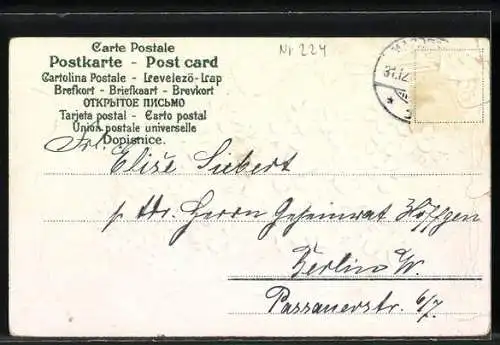 Carte Postale
Postkarte - Post card
Cartolina Postale - Levelező-Lap
Brefkort - Briefkaart - Brevkort
ОТКРЫТОЕ ПИСЬМО
Tarjeta postal - Carto postal
Union postale universelle
Dopisnice.
Nr 224
31.12.
Frl. Elise Siebert
p. Adr. Herrn Geheimrat Höffgen
Berlin W.
Passauerstr. 6/7.